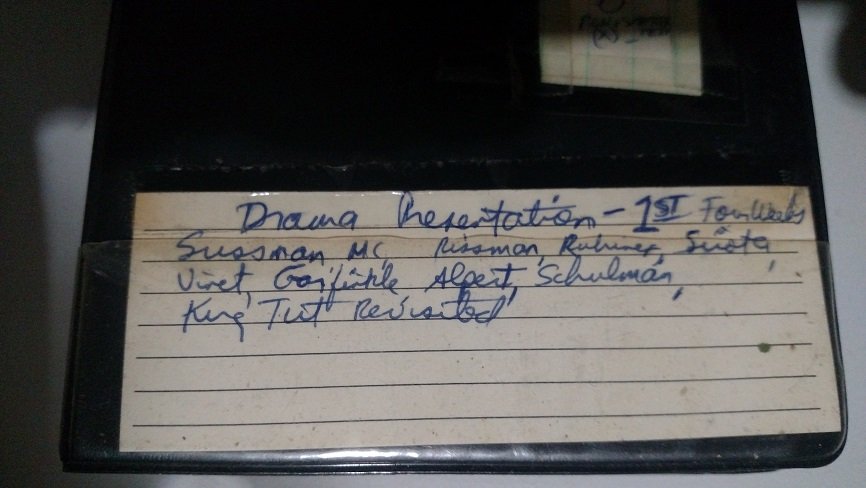 Drama Presentation - 1ST Four Weeks
Sussman MC, Rissman, Rubiner, Suota,
Viret, Garfinkle, Alpert, Schulman,
King Tut Revisited